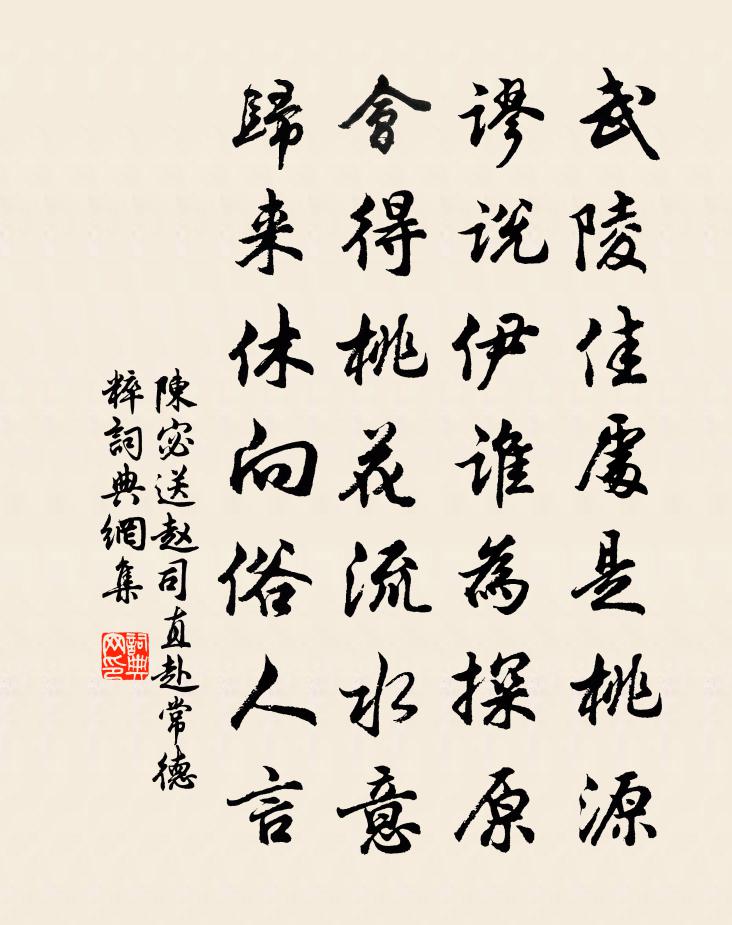 武陵佳處是桃源
謬説伊誰為探原
會得桃花流水意
歸来休向俗人言
陳宓送赵司直赴常德
粹詞典網集
詞典网印